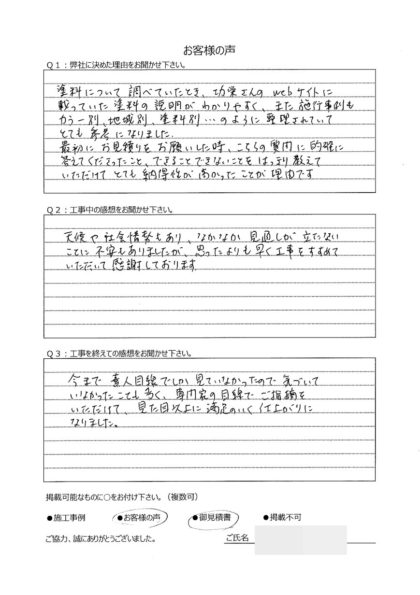 お客様の声
Q1：弊社に決めた理由をお聞かせ下さい。
塗料について調べていたとき、功栄さんのwebサイトに
載っていた塗料の説明がわかりやすく、また施行事例も
カラー別、地域別、塗料別…のように整理されていて
とても参考になりました。
最初にお見積りをお願いした時、こちらの質問に的確に
答えてくださったこと、できることできないことをはっきり教えて
いただけてとても納得性が高かったことが理由です
Q2：工事中の感想をお聞かせ下さい。
天候や社会情勢もあり、なかなか見通しが立たない
ことに不安もありましたが、思ったよりも早く工事をすすめて
いただいて感謝しております
Q3：工事を終えての感想をお聞かせ下さい。
今まで素人目線でしか見ていなかったので気づいて
いなかったことも多く、専門家の目線でご指摘を
いただけて、見た目以上に満足のいく仕上がりに
なりました。
掲載可能なものに○をお付け下さい。（複数可）
●施工事例 ●お客様の声 ●御見積書 ●掲載不可
ご協力、誠にありがとうございました。 ご氏名